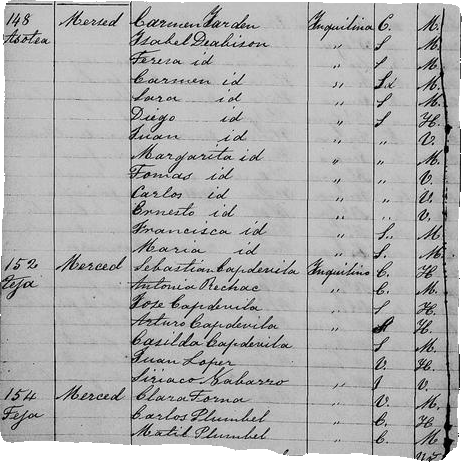 148 Mersed Carmen Jarden Inquilina C. M.
Asotea Ysabel Deabison " S M.
Teresa id " S M.
Carmen id " M.
Sara id " S M.
Diego id " S H.
Juan id " " V.
Margarita id " " M.
Tomas id " " V.
Carlos id " " V.
Ernesto id " " V.
Francisca id " S. M
Maria id " S. M.
152 Merced Sebastian Capdevila Inquilino C. H
Teja Antonia Rechac " C. M.
Jose Capdevila " S H.
Arturo Capdevila " H.
Casilda Capdevila S M.
Juan Loper V. H.
Siriaco Nabarro " V.
154 Merced Clara Torna " V. M.
Teja Carlos Plumbel " C. H.
Matil Plumbel " C. M